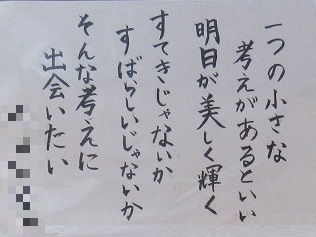 一つの小さな
考えがあるといい
明日が美しく輝く
すてきじゃないか
すばらしいじゃないか
そんな考えに
出会いたい